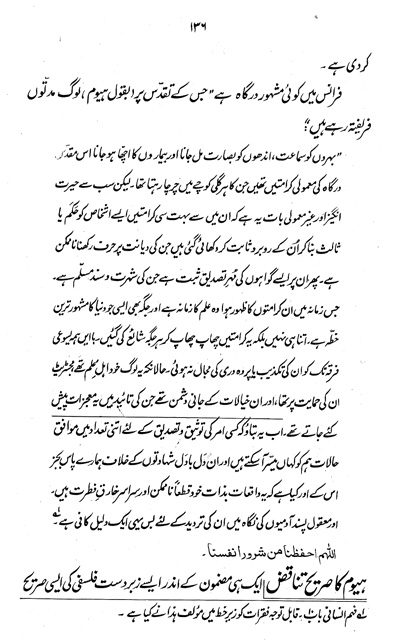 ۱۳۶
کر دی ہے۔
فرانس میں کوئی مشہور درگاہ ہے "جس کے تقدس پر (بقول ہیوم) لوگ مدتوں
فریفتہ رہے ہیں":
"بہروں کو سماعت، اندھوں کو بصارت مل جانا اور بیماروں کا اچھا ہو جانا اس مقدس
درگاہ کی معمولی کرامتیں تھیں جن کا ہر گلی کوچے میں چرچا رہتا تھا۔ لیکن سب سے حیرت
انگیز اور غیر معمولی بات یہ ہے کہ ان میں سے بہت سی کرامتیں ایسے اشخاص کو حکم یا
ثالث بنا کر ان کے روبرو ثابت کر دکھائی گئی ہیں جن کی دیانت پر حرف رکھنا ناممکن
ہے۔ پھر ان پر ایسے گواہوں کی مہر تصدیق ثبت ہے جن کی شہرت و سند مسلم ہے۔
جس زمانہ میں ان کرامتوں کا ظہور ہوا وہ علم کا زمانہ ہے اور جگہ بھی ایسی جو دنیا کا مشہور ترین
خطہ ہے، اتنا ہی نہیں بلکہ یہ کرامتیں چھاپ چھاپ کر ہر جگہ شائع کی گئیں۔ با ایں ہمہ یسوعی
فرقہ تک کو ان کی تکذیب یا پردہ دری کی مجال نہ ہوئی۔ حالانکہ یہ لوگ خود اہل علم تھے، مجسٹریٹ
ان کی حمایت پر تھا، اور ان خیالات کے جانی دشمن تھے جن کی تائید میں یہ معجزات پیش
کئے جاتے تھے۔ اب یہ بتاؤ کہ کسی امر کی توثیق و تصدیق کے لئے اتنی تعداد میں موافق
حالات ہم کو کہاں میسر آ سکتے ہیں اور ان دل بادل شہادتوں کے خلاف ہمارے پاس بجز
اس کے اور کیا ہے کہ یہ واقعات بذات خود قطعاً ناممکن اور سراسر خارق فطرت ہیں۔
اور معقول پسند آدمیوں کی نگاہ میں ان کی تردید کے لئے بس یہی ایک دلیل کافی ہے"۔ ؎۱
اللهم احفظنا من شرور انفسنا۔
ہیوم کا صریح تناقض | ایک ہی مضمون کے اندر ایسے زبردست فلسفی کی ایسی صریح
؎۱ فہم انسانی باب ۱۰۔ قابل توجہ فقرات کو زیر خط میں مؤلف ہذا نے کیا ہے۔